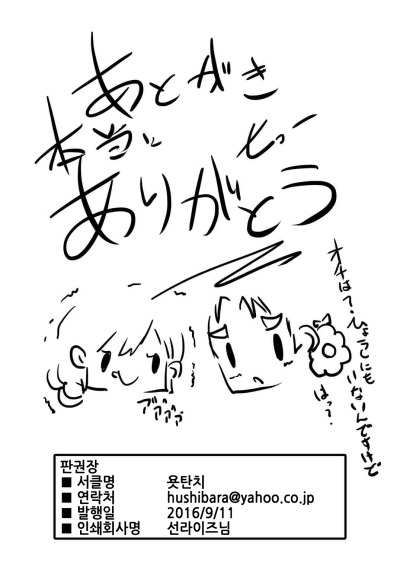 あとがき
本当に
ありがとう
オチは?ひょうこにも
いないんですけど
はっ?
판권장
■ 서클명 욧탄치
■ 연락처 hushibara@yahoo.co.jp
■ 발행일 2016/9/11
■ 인쇄회사명 선라이즈님